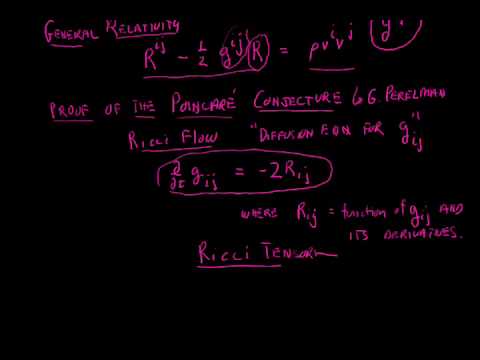 GENERAL RELATIVITY
R^{ij} - 1/2 g^{ij} R = ρ v^i v^j
PROOF OF THE POINCARÉ CONJECTURE by G. PERELMAN
RICCI FLOW "DIFFUSION EQN FOR g_{ij}"
∂/∂t g_{ij} = -2 R_{ij}
WHERE R_{ij} = function of g_{ij} AND
ITS DERIVATIVES.
RICCI TENSOR